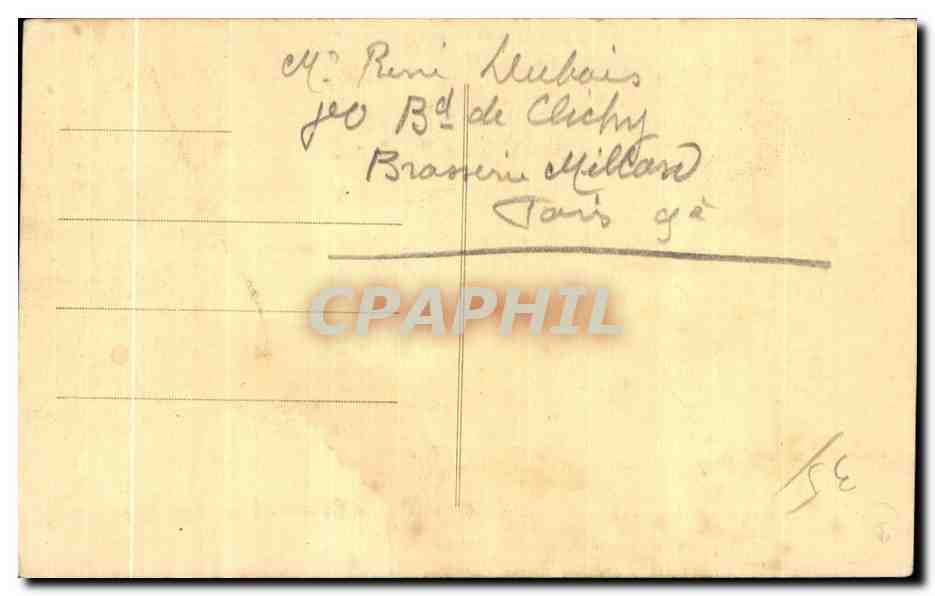 Mr René Dubois
Bd de Clichy
Brasserie
Paris 9e
CPAPHIL
15€